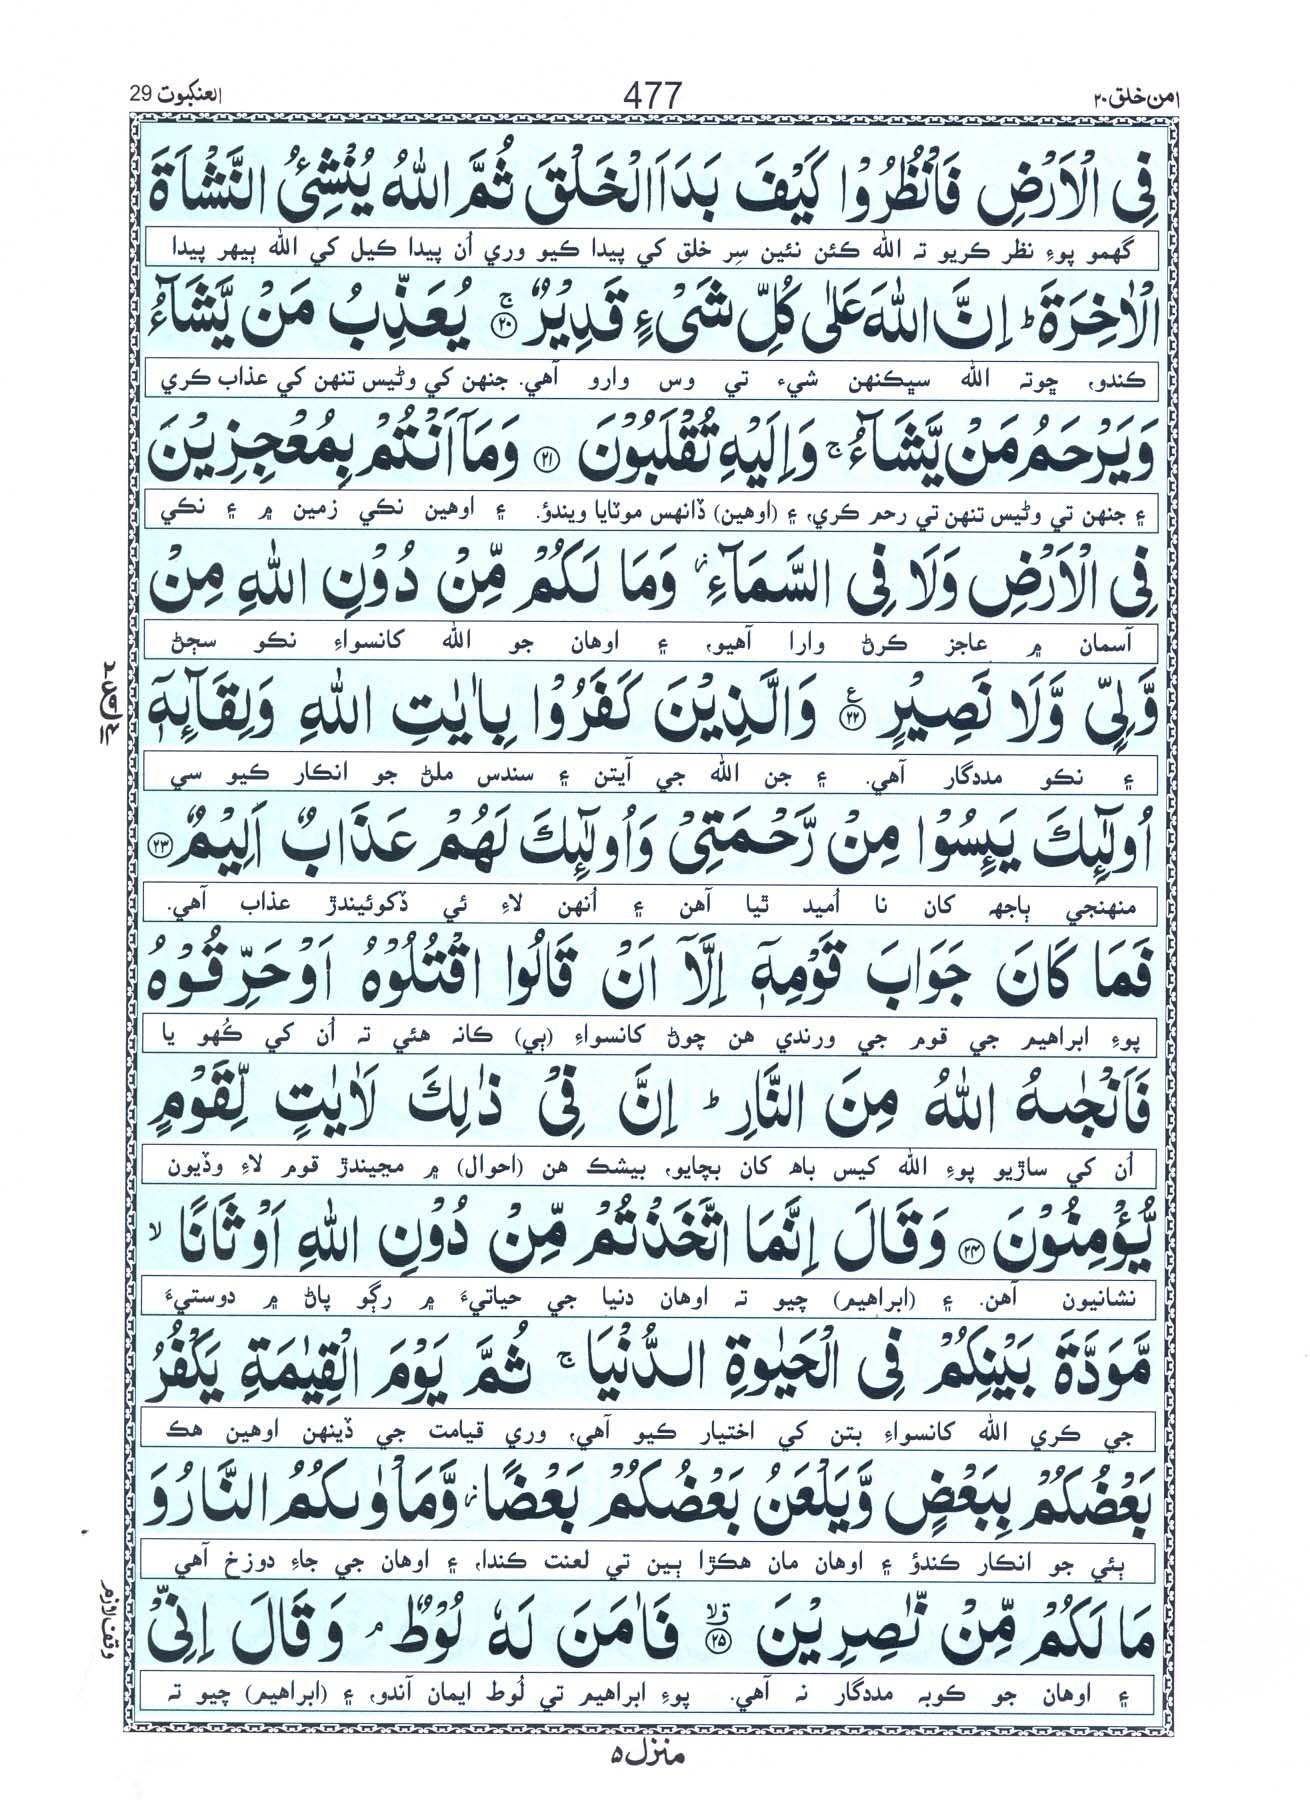 امن خلق ۲۰
477
العنکبوت 29
فِی الْاَرْضِ فَانْظُرُوْا كَیْفَ بَدَاَ الْخَلْقَ ثُمَّ اللّٰهُ یُنْشِئُ النَّشْاَةَ
گهمو پوءِ نظر ڪريو تہ الله ڪئن نئين سِر خلق کي پيدا ڪيو وري اُن پيدا ڪيل کي الله ٻيهر پيدا
الْاٰخِرَةَ ؕ اِنَّ اللّٰهَ عَلٰی كُلِّ شَیْءٍ قَدِیْرٌ ۚ۝۲۰ یُعَذِّبُ مَنْ یَّشَآءُ
ڪندو، ڇوتہ الله سڀڪنهن شيء تي وس وارو آهي. جنهن کي وڻيس تنهن کي عذاب ڪري
وَیَرْحَمُ مَنْ یَّشَآءُ ۚ وَاِلَیْهِ تُقْلَبُوْنَ ۝۲۱ وَمَاۤ اَنْتُمْ بِمُعْجِزِیْنَ
۽ جنهن تي وڻيس تنهن تي رحم ڪري، ۽ (اوهين) ڏانهس موٽايا ويندؤ. ۽ اوهين نڪي زمين ۾ ۽ نڪي
فِی الْاَرْضِ وَلَا فِی السَّمَآءِ ؗ وَمَا لَكُمْ مِّنْ دُوْنِ اللّٰهِ مِنْ
آسمان ۾ عاجز ڪرڻ وارا آهيو، ۽ اوهان جو الله کانسواءِ نڪو سڄڻ
وَّلِیٍّ وَّلَا نَصِیْرٍ ۝۲۲ۧ وَالَّذِیْنَ كَفَرُوْا بِاٰیٰتِ اللّٰهِ وَلِقَآئِهٖۤ
۽ نڪو مددگار آهي. ۽ جن الله جي آيتن ۽ سندس ملڻ جو انڪار ڪيو سي
اُولٰٓئِكَ یَئِسُوْا مِنْ رَّحْمَتِیْ وَاُولٰٓئِكَ لَهُمْ عَذَابٌ اَلِیْمٌ ۝۲۳
منهنجي ٻاجهہ کان نا اُميد ٿيا آهن ۽ اُنهن لاءِ ئي ڏکوئيندڙ عذاب آهي.
فَمَا كَانَ جَوَابَ قَوْمِهٖۤ اِلَّاۤ اَنْ قَالُوا اقْتُلُوْهُ اَوْ حَرِّقُوْهُ
پوءِ ابراهيم جي قوم جي ورندي هن چوڻ کانسواءِ (ٻي) ڪانہ هئي تہ اُن کي ڪُهو يا
فَاَنْجٰىهُ اللّٰهُ مِنَ النَّارِ ؕ اِنَّ فِیْ ذٰلِكَ لَاٰیٰتٍ لِّقَوْمٍ
اُن کي ساڙيو پوءِ الله کيس باهہ کان بچايو، بيشڪ هن (احوال) ۾ مڃيندڙ قوم لاءِ وڏيون
یُّؤْمِنُوْنَ ۝۲۴ وَقَالَ اِنَّمَا اتَّخَذْتُمْ مِّنْ دُوْنِ اللّٰهِ اَوْثَانًا ۙ
نشانيون آهن. ۽ (ابراهيم) چيو تہ اوهان دنيا جي حياتيءَ ۾ رڳو پاڻ ۾ دوستيءَ
مَّوَدَّةَ بَیْنِكُمْ فِی الْحَیٰوةِ الدُّنْیَا ۚ ثُمَّ یَوْمَ الْقِیٰمَةِ یَكْفُرُ
جي ڪري الله کانسواءِ بتن کي اختيار ڪيو آهي، وري قيامت جي ڏينهن اوهين هڪ
بَعْضُكُمْ بِبَعْضٍ وَّیَلْعَنُ بَعْضُكُمْ بَعْضًا ؗ وَّمَاْوٰىكُمُ النَّارُ وَ
ٻئي جو انڪار ڪندؤ ۽ اوهان مان هڪڙا ٻين تي لعنت ڪندا، ۽ اوهان جي جاءِ دوزخ آهي
مَا لَكُمْ مِّنْ نّٰصِرِیْنَ ۝۲۵ۗۙ فَاٰمَنَ لَهٗ لُوْطٌ ۘ وَقَالَ اِنِّیْ
۽ اوهان جو ڪوبہ مددگار نہ آهي. پوءِ ابراهيم تي لُوط ايمان آندو، ۽ (ابراهيم) چيو تہ
وقف لازم
منزل ۵